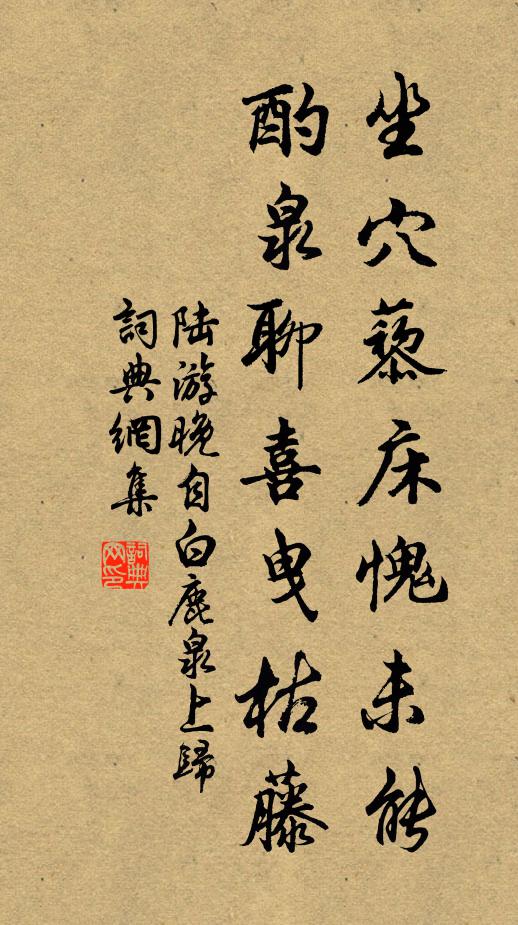 坐穴藜床愧未能
酌泉聊喜曳枯藤
陸游晚自白鹿泉上歸
詞典網集
詞典網印